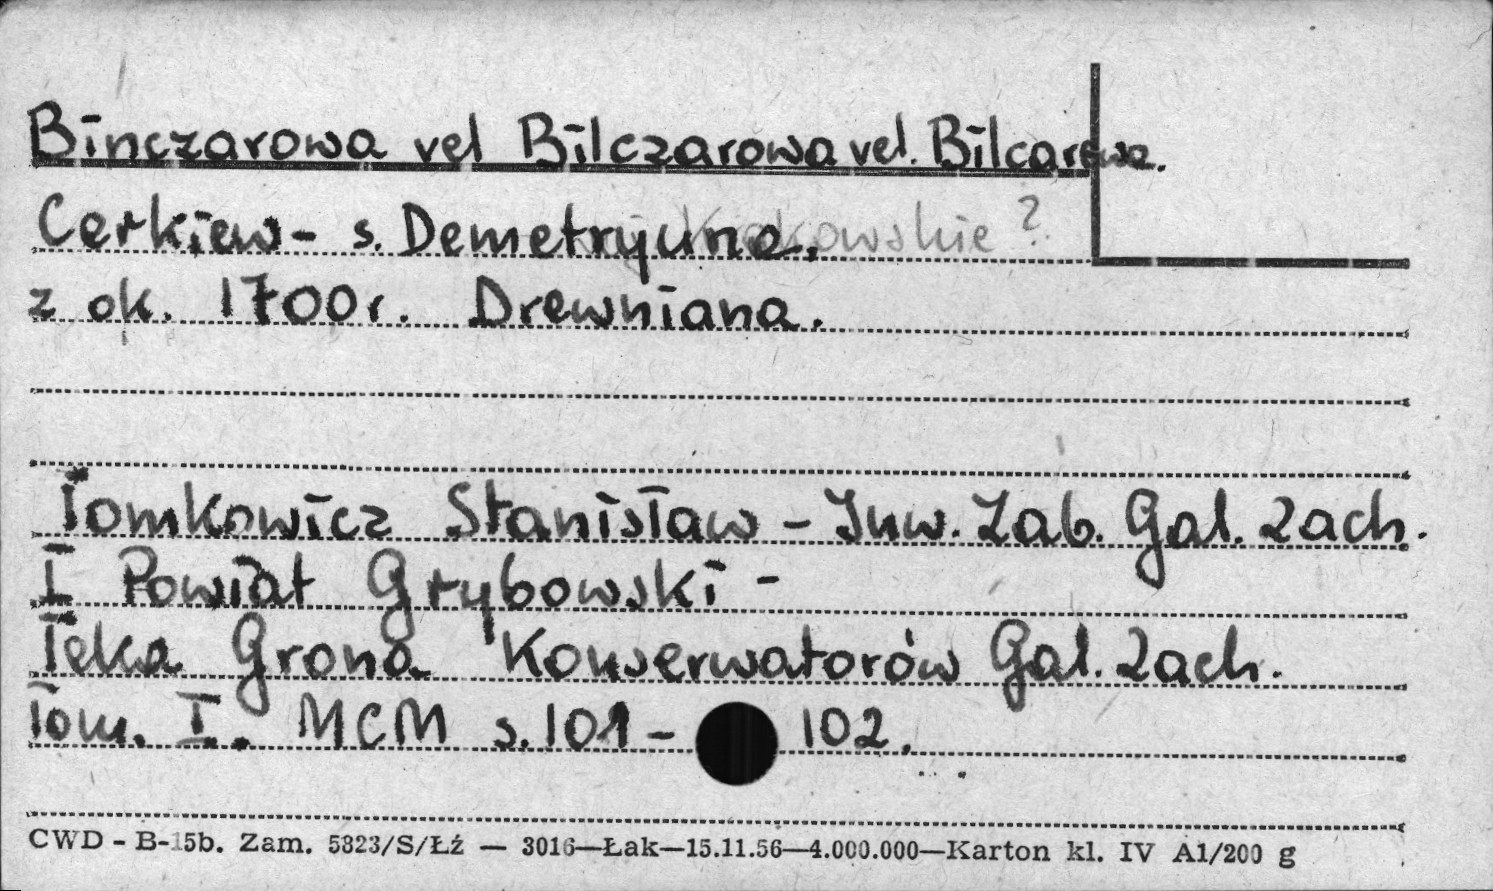 Binczarowa vel Bilczarowa vel. Bilcarowa.
Cerkiew - s. Demetryuna. Krakowskie ?
z ok. 1700 r. Drewniana.
Tomkowicz Stanisław - Inw. Zab. Gal. Zach.
I Powiat Grybowski -
Teka Grona Konserwatorów Gal. Zach.
Tom. I. MCM s. 101 - 102.
CWD - B-15b. Zam. 5323/S/Łź — 3016—Łak—15.11.56—4.000.000—Karton kl. IV A1/200 g